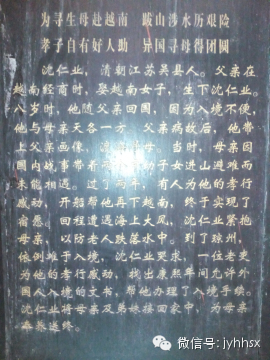 为寻生母赴越南 跋山涉水历艰险
孝子自有好人助 异国寻母得团圆
沈仁业，清朝江苏吴县人。父亲在
越南经商时，娶越南女子，生下沈仁业。
八岁时，他随父亲回国，因为入境不便，
他与母亲天各一方。父亲病故后，他带
上父亲画像，母。当时，母亲因
国内战事带着子女进山避难而
未能相遇。过了两年，有人为他的孝行
感动，开船帮他再下越南，终于实现了
宿愿。回程遭遇海上大风，沈仁业紧抱
母亲，以防老人跌落水中。到了琼州，
依例难于入境，沈仁业哭求，一位老吏
为他的孝行感动，找出康熙年间允许外
国人入境的文书，帮他办理了入境手续。
沈仁业将母亲及弟妹接回家中，为母亲
养老送终。
微信号：jyhhsx